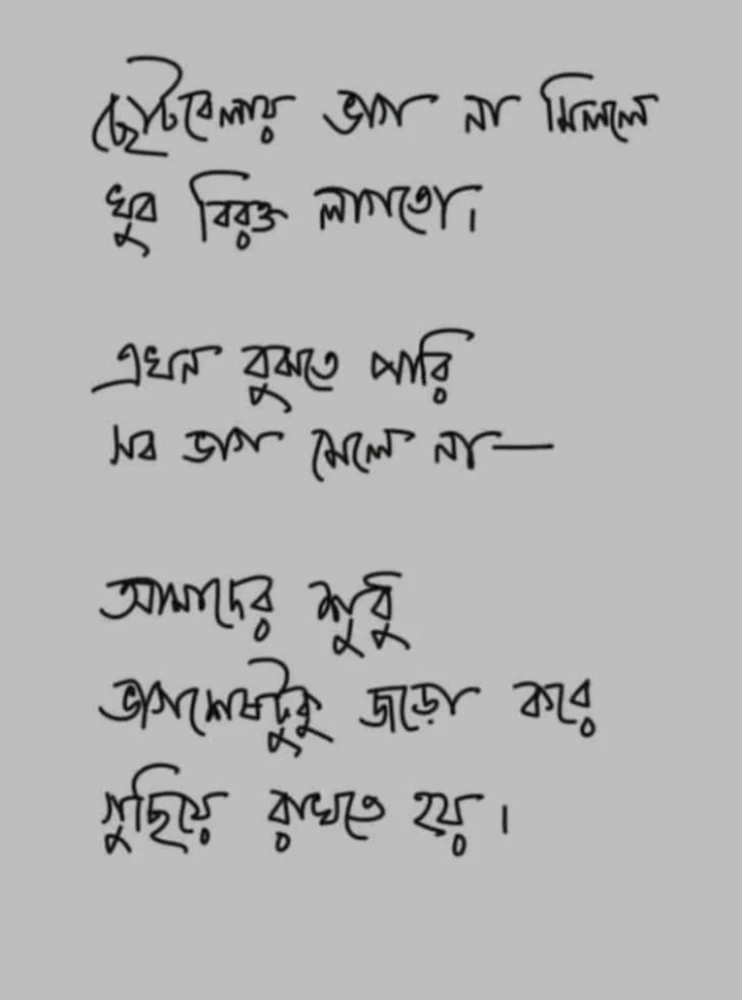 ছোটবেলায় ভাগ না মিললে
খুব বিরক্ত লাগতো।
এখন বুঝতে পারি
সব ভাগ মেলে না—
আমাদের শুধু
ভাগশেষটুকু জড়ো করে
গুছিয়ে রাখতে হয়।